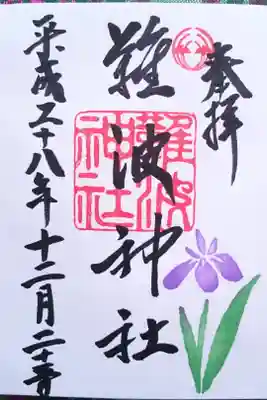 奉拝
難波神社
難波神社
平成二十八年十二月二十三日